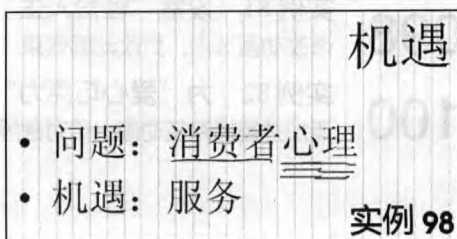 机遇
• 问题：消费者心理
• 机遇：服务
实例 98